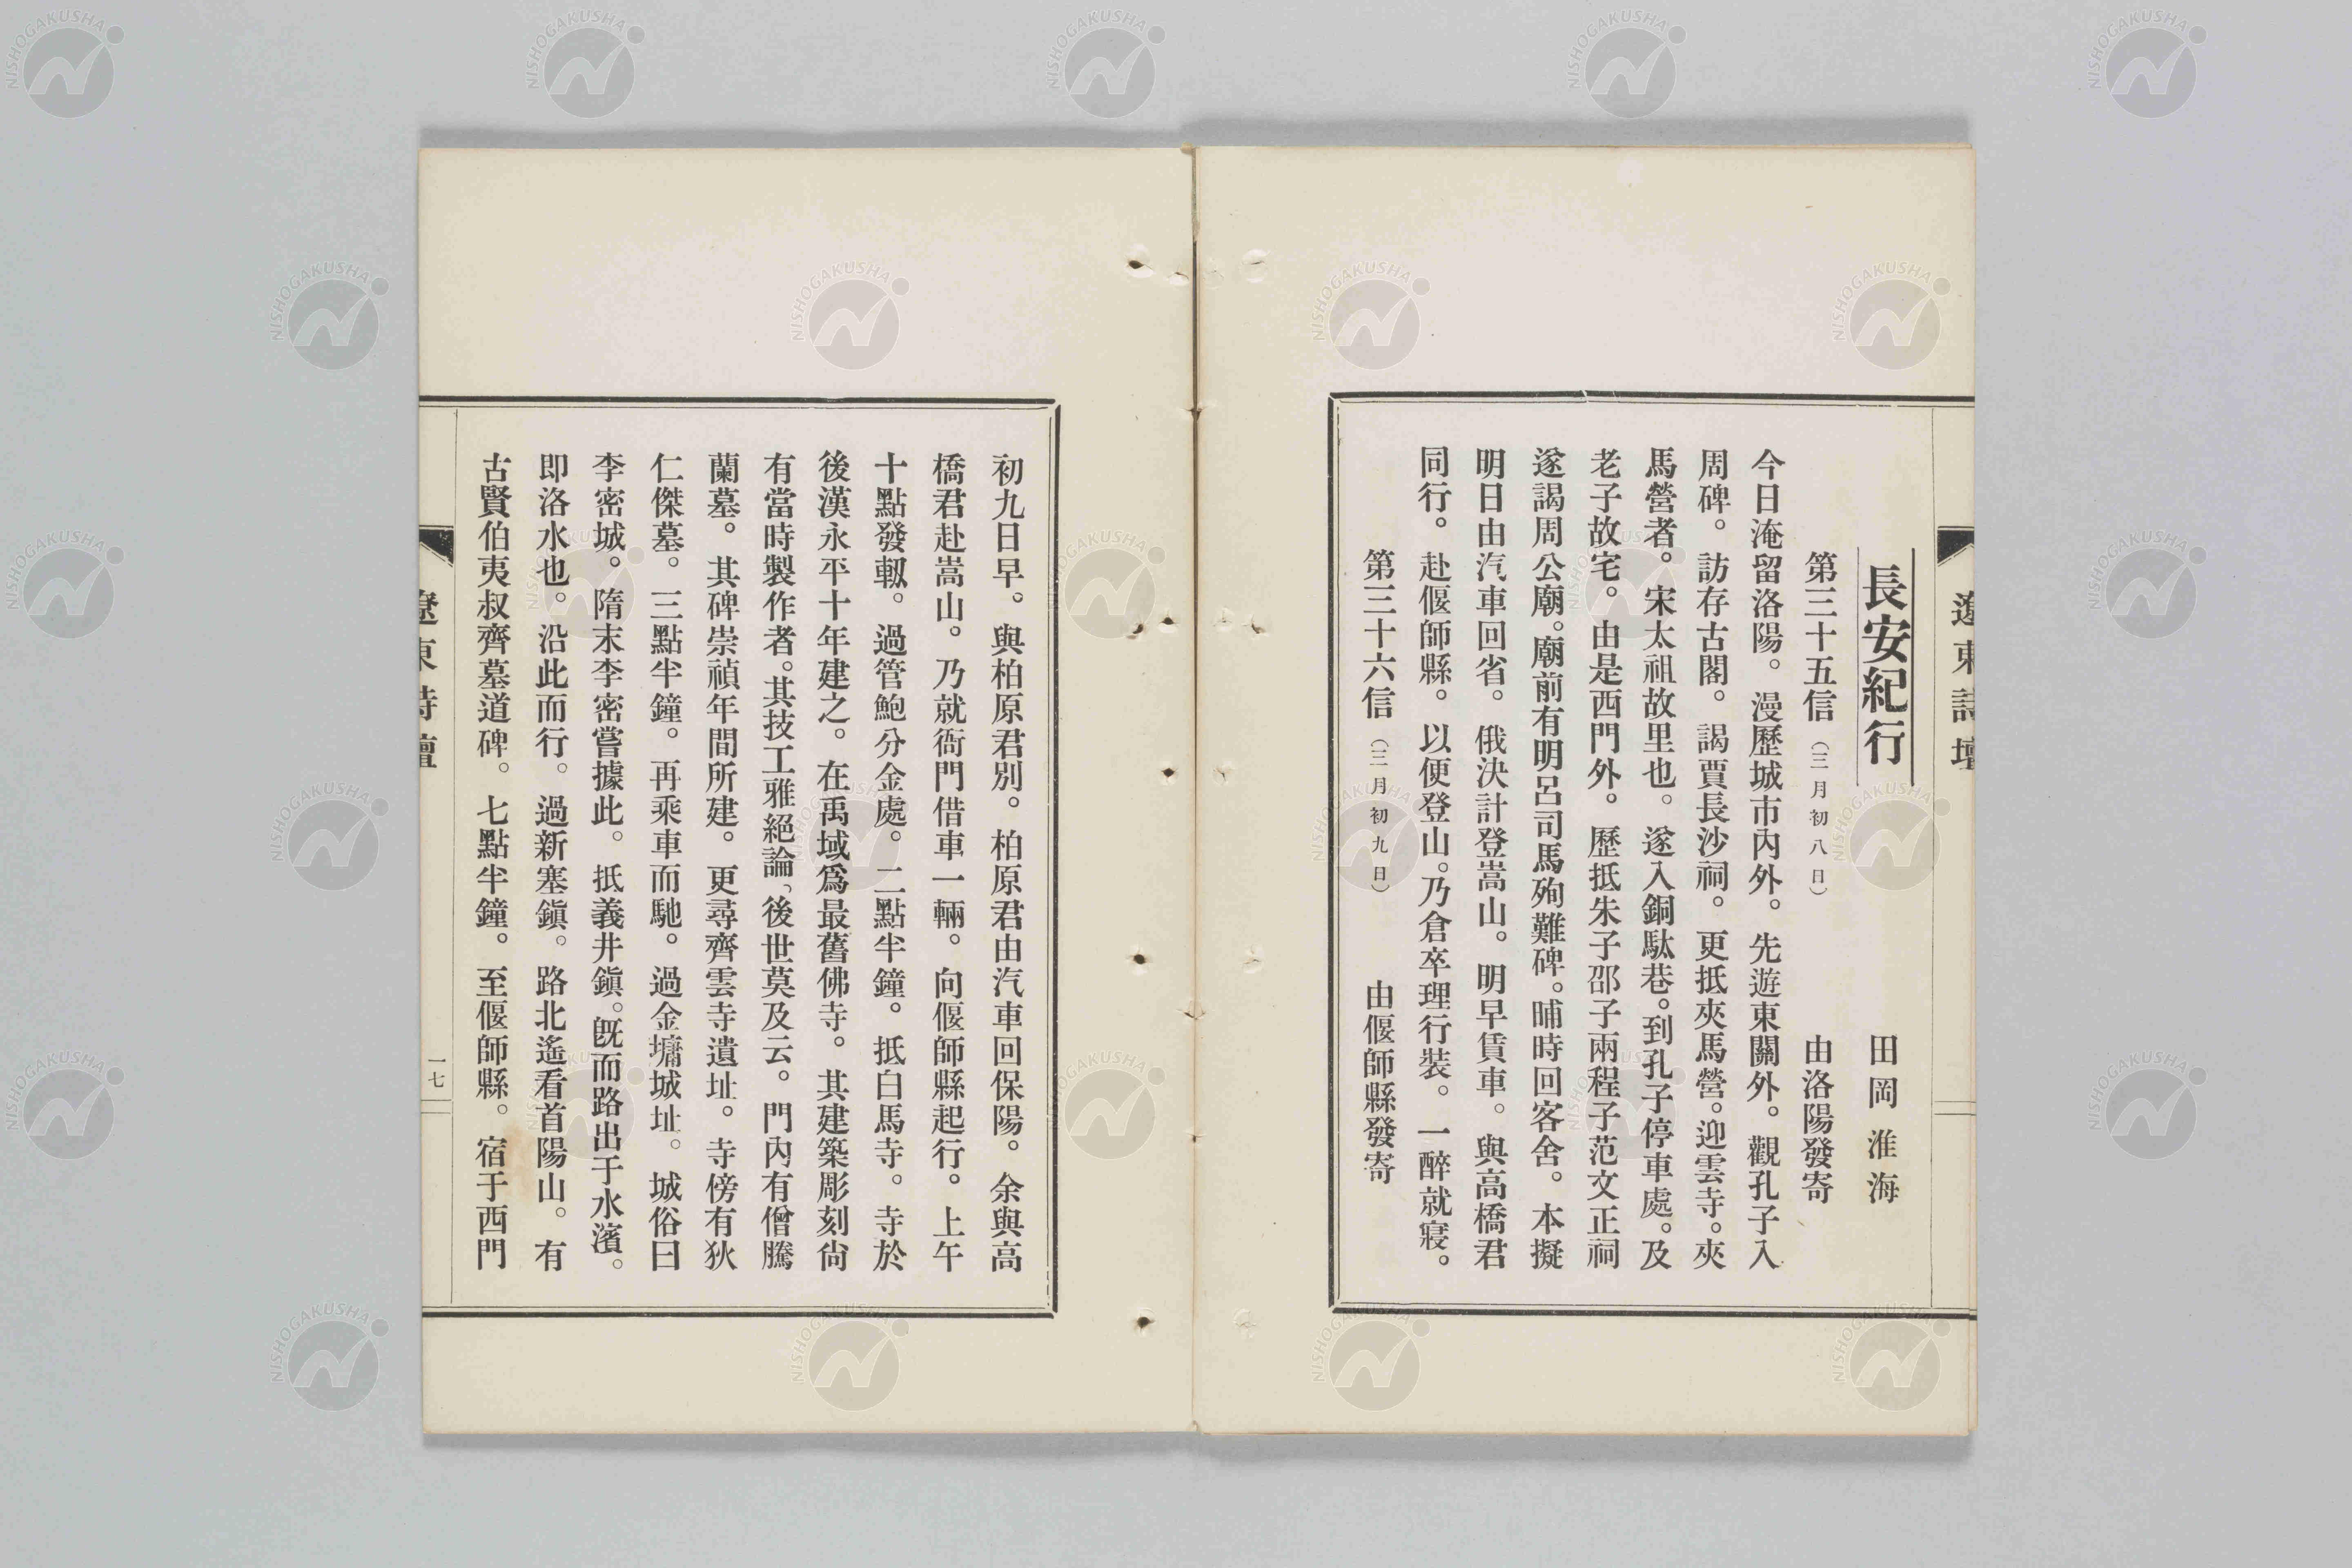 遼東詩壇
長安紀行
田岡淮海
第三十五信（三月初八日）
由洛陽發寄
今日淹留洛陽。漫歷城市內外。先遊東關外。觀孔子入
周碑。訪存古閣。謁賈長沙祠。更抵夾馬營。迎雲寺。夾
馬營者。宋太祖故里也。遂入銅駄巷。到孔子停車處。及
老子故宅。由是西門外。歷抵朱子邵子兩程子范文正祠
遂謁周公廟。廟前有明呂司馬殉難碑。晡時回客舍。本擬
明日由汽車回省。俄決計登嵩山。明早賃車。與高橋君
同行。赴偃師縣。以便登山。乃倉卒理行裝。一醉就寢。
第三十六信（三月初九日）
由偃師縣發寄
初九日早。與柏原君別。柏原君由汽車回保陽。余與高
橋君赴嵩山。乃就衙門借車一輛。向偃師縣起行。上午
十點發軔。過管鮑分金處。二點半鐘。抵白馬寺。寺於
後漢永平十年建之。在禹域爲最舊佛寺。其建築彫刻尙
有當時製作者。其技工雅絕論、後世莫及云。門內有僧騰
蘭墓。其碑崇禎年間所建。更尋齊雲寺遺址。寺傍有狄
仁傑墓。三點半鐘。再乘車而馳。過金墉城址。城俗曰
李密城。隋末李密嘗據此。抵義井鎭。旣而路出于水濱。
即洛水也。沿此而行。過新塞鎭。路北遙看首陽山。有
古賢伯夷叔齊墓道碑。七點半鐘。至偃師縣。宿于西門
遼東詩壇
一七
NISHOGAKUSHA